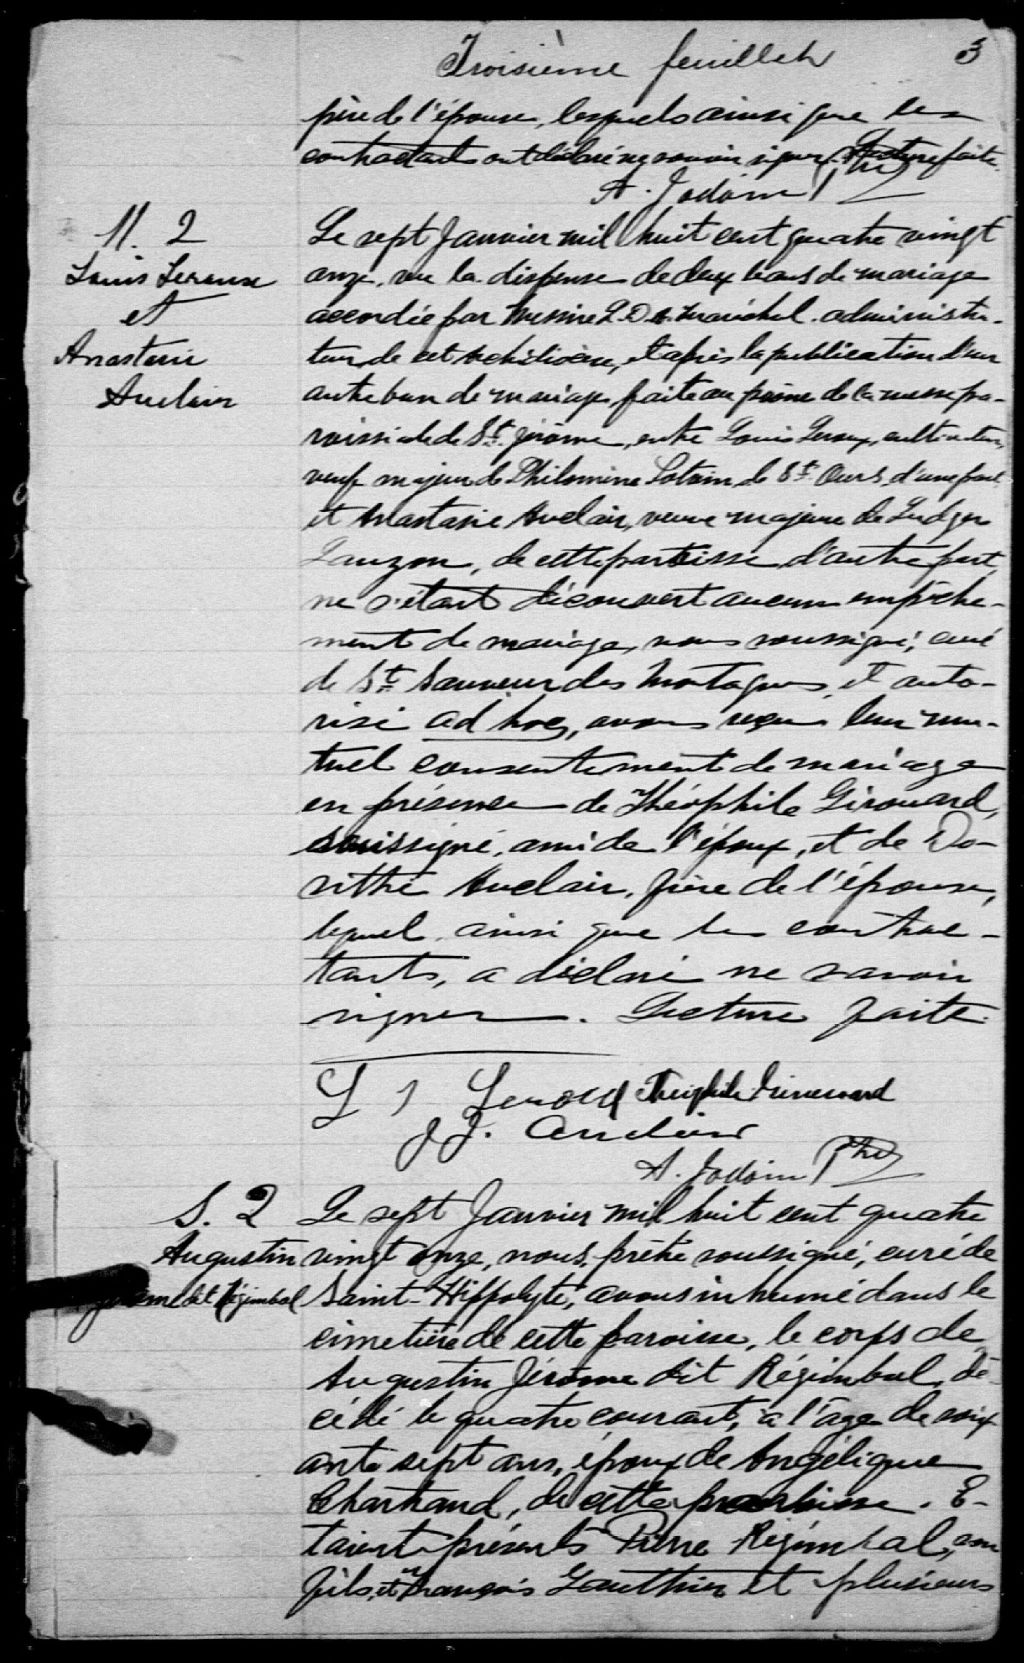 Troisième feuillet 3
père de l'épouse, lesquels ainsi que les
contractants ont déclaré ne savoir signer. Lecture faite.
A. Jodoin Ptre
M. 2
Louis Leroux
et
Anastasie
Auclair
Le sept Janvier mil huit cent quatre vingt
onze, vu la dispense de deux bans de mariage
accordée par Messire L. D. A. Maréchal administra-
teur de cet Archidiocèse, et après la publication d'un
autre ban de mariage, faite au prône de la messe pa-
roissiale de St. Jérôme, entre Louis Leroux, cultivateur,
veuf majeur de Philomène, de St. Ours, d'une part
et Anastasie Auclair, veuve majeure de Ludger
Lauzon, de cette paroisse, d'autre part,
ne s'étant découvert aucun empêche-
ment de mariage, nous soussigné, curé
de St. Sauveur des Montagnes, et auto-
risé ad hoc, avons reçu leur mu-
tuel consentement de mariage
en présence de Théophile Girouard,
soussigné, ami de l'époux, et de Do-
sithé Auclair, frère de l'épouse,
lequel, ainsi que les contrac-
tants, a déclaré ne savoir
signer. Lecture faite.
L Leroux Theophile Girouard
J. J. Auclair
A. Jodoin Ptre
S. 2
Augustin
Jérôme dit Régimbal
Le sept Janvier mil huit cent quatre
vingt onze, nous, prêtre soussigné, curé de
Saint-Hippolyte, avons inhumé dans le
cimetière de cette paroisse, le corps de
Augustin Jérôme dit Régimbal, dé-
cédé le quatre courant, à l'âge de soix
ante sept ans, époux de Angélique
Chartrand, de cette paroisse. E-
taient présents Pierre Régimbal, son
fils, et François Gauthier et plusieurs